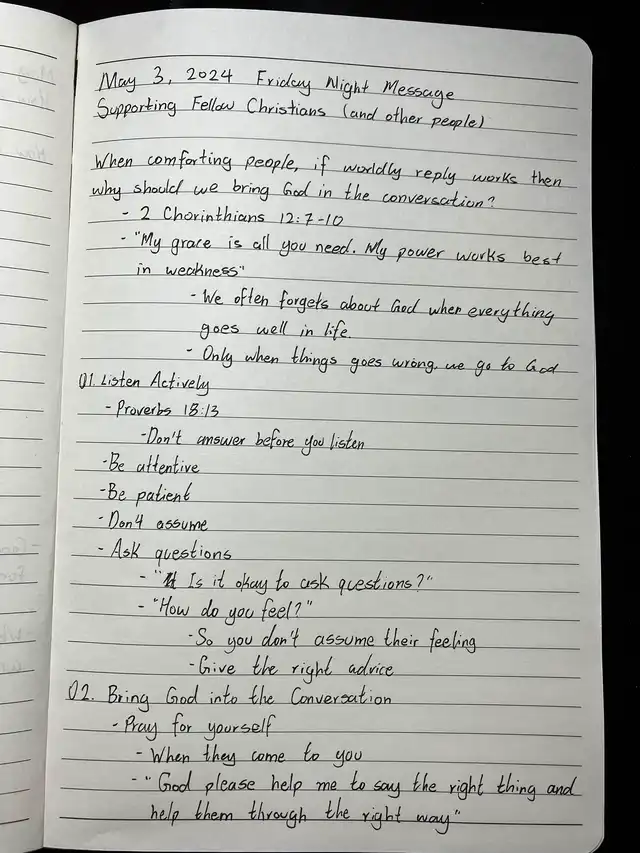 May 3, 2024 Friday Night Message
Supporting Fellow Christians (and other people)
When comforting people, if worldly reply works then
why should we bring God in the conversation?
- 2 Chorinthians 12:7-10
- "My grace is all you need. My power works best
in weakness"
- We often forgets about God when everything
goes well in life.
- Only when things goes wrong, we go to God
01. Listen Actively
- Proverbs 18:13
- Don't answer before you listen
- Be attentive
- Be patient
- Don't assume
- Ask questions
- "Is it okay to ask questions?"
- "How do you feel?"
- So you don't assume their feeling
- Give the right advice
02. Bring God into the Conversation
- Pray for yourself
- When they come to you
- "God please help me to say the right thing and
help them through the right way"